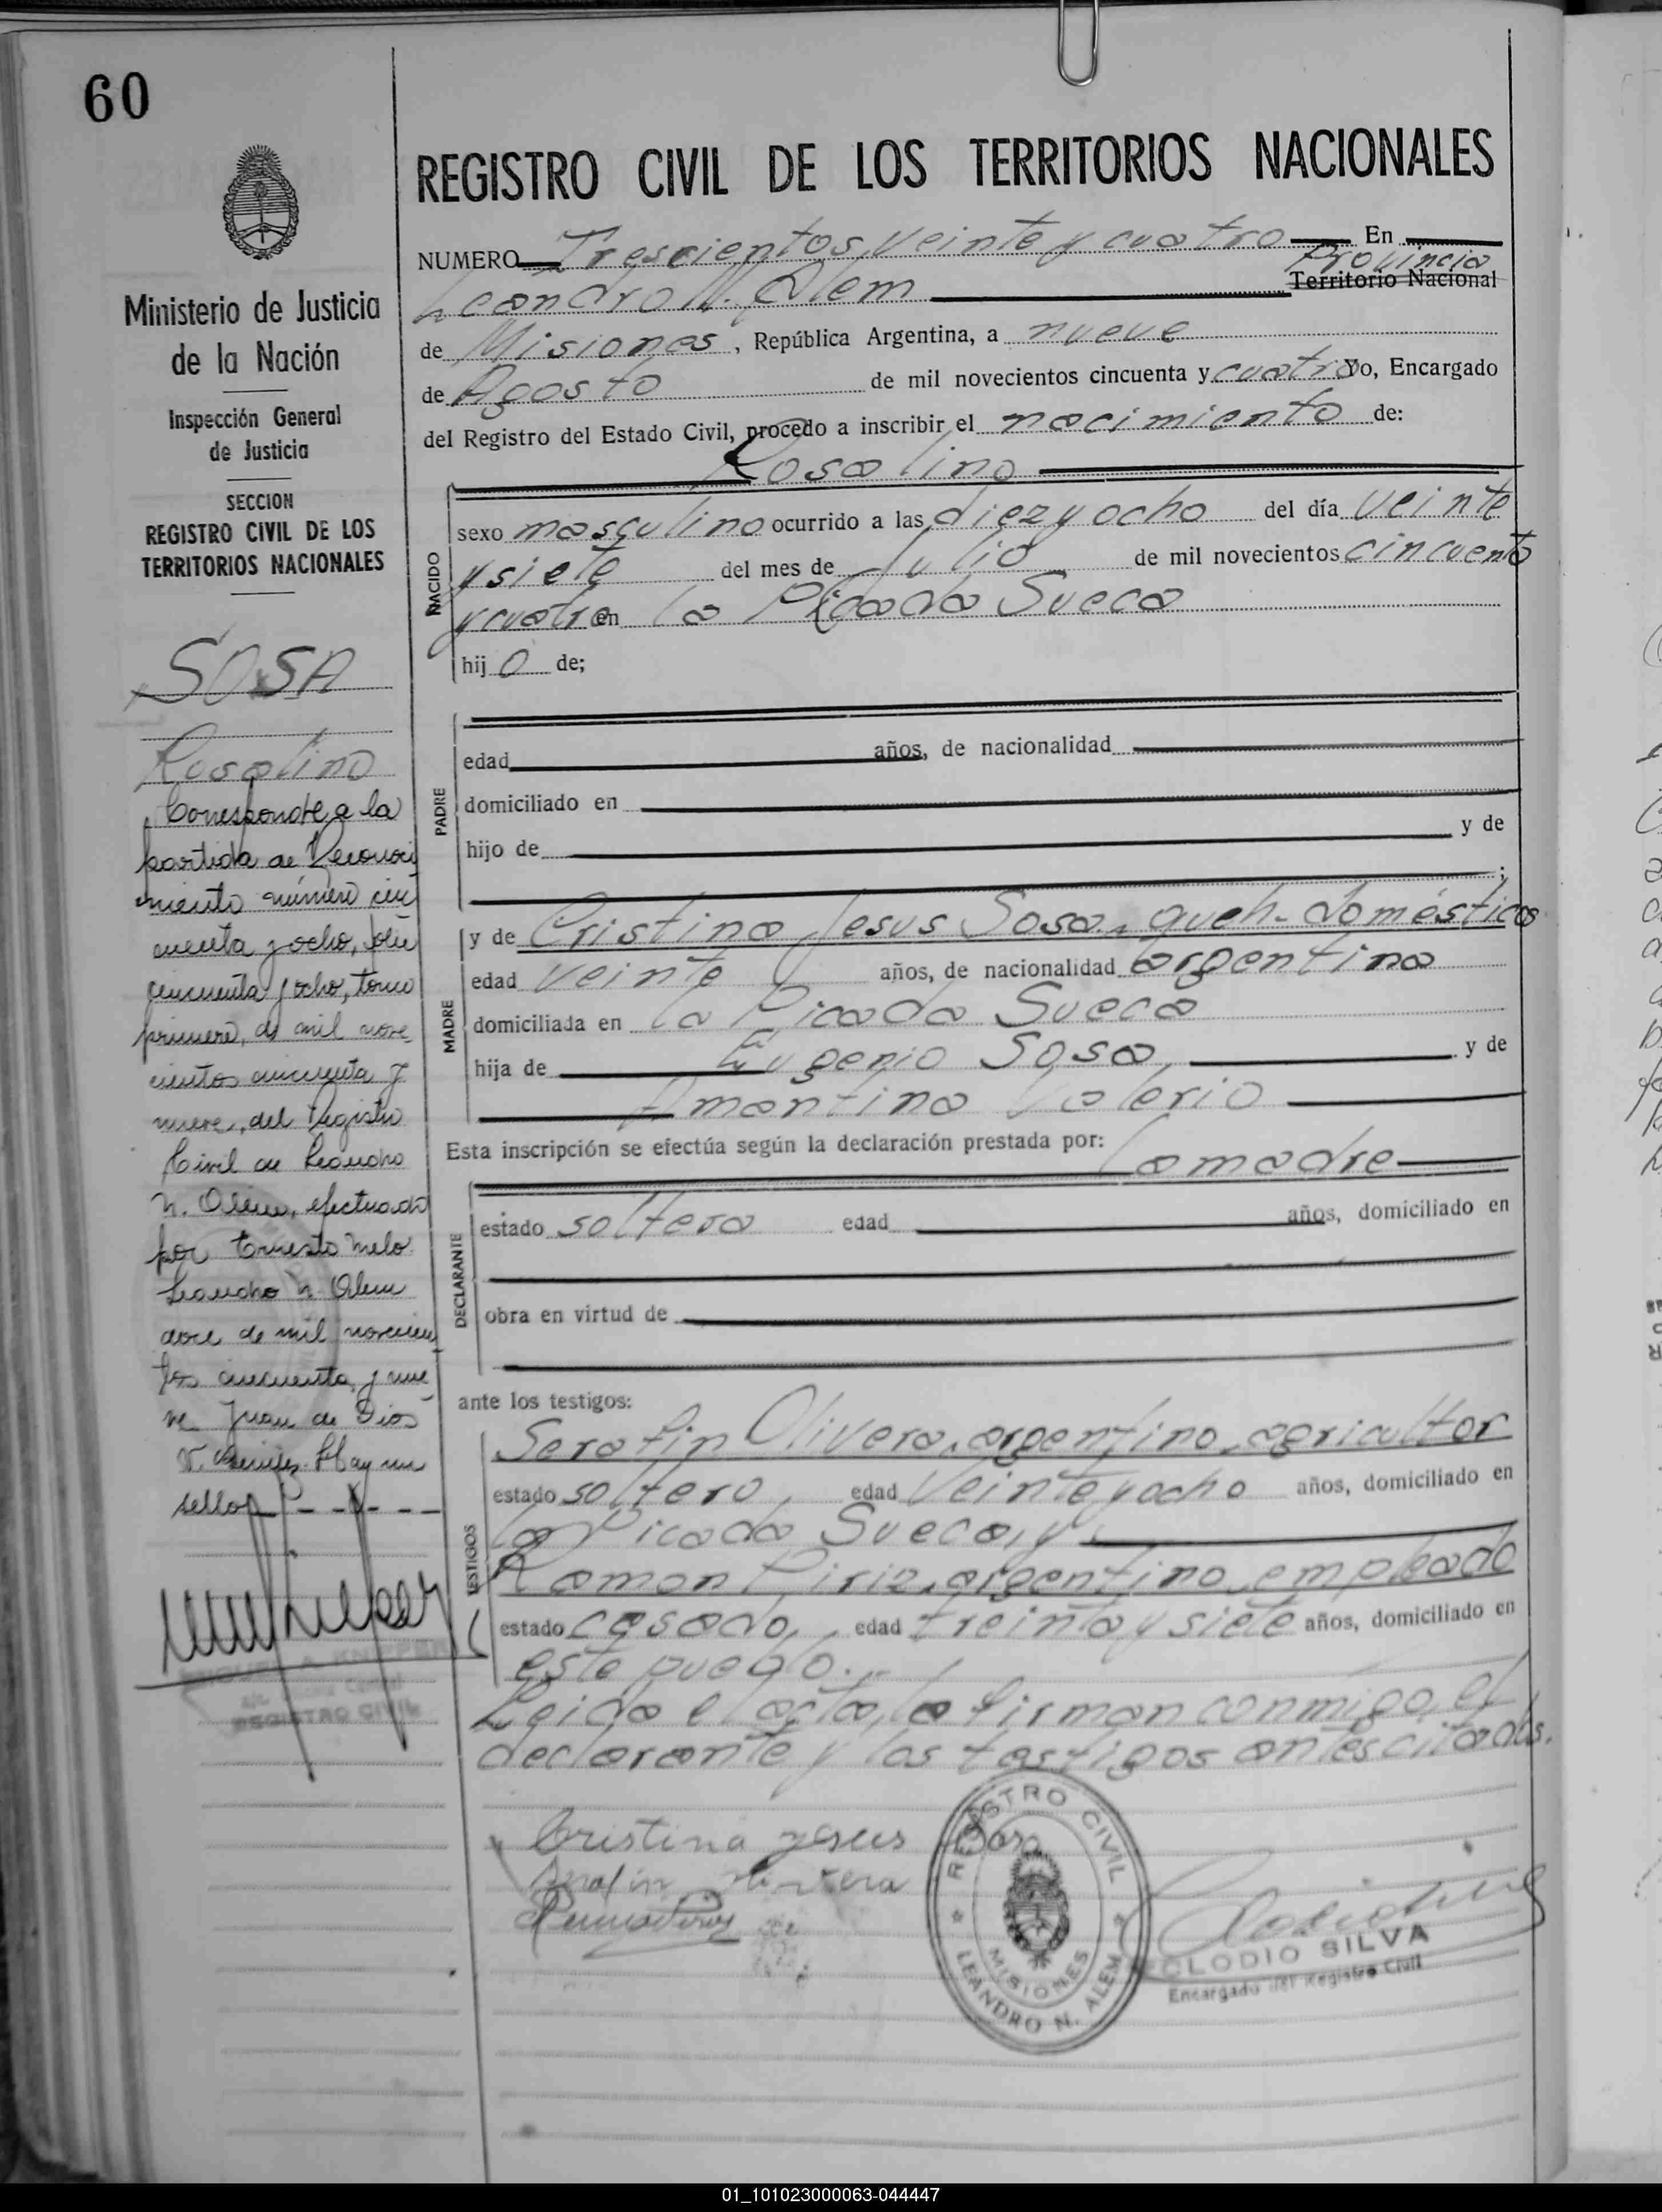 60
REGISTRO CIVIL DE LOS TERRITORIOS NACIONALES
NUMERO Trescientos, veinte y cuatro En
Leandro N. Alem Provincia Territorio Nacional
de Misiones, República Argentina, a nueve
de Agosto de mil novecientos cincuenta y cuatro Yo, Encargado
del Registro del Estado Civil, procedo a inscribir el nacimiento de:
Rosalino
NACIDO
sexo masculino ocurrido a las diez y ocho del día veinte
y siete del mes de Julio de mil novecientos cincuenta
y cuatro en la Picada Sueca
hij o de;
PADRE
edad años, de nacionalidad
domiciliado en
hijo de y de
;
MADRE
y de Cristina Jesus Sosa, queh-domésticos
edad veinte años, de nacionalidad argentina
domiciliada en la Picada Sueca
hija de Eugenio Sosa y de
Amantina Valerio
Esta inscripción se efectúa según la declaración prestada por: La madre
DECLARANTE
estado soltera edad años, domiciliado en
obra en virtud de
ante los testigos:
TESTIGOS
Serafin Olivera, argentino, agricultor
estado soltero, edad veinte y ocho años, domiciliado en
la Picada Sueca, y
Ramon Piriz, argentino, empleado
estado casado, edad treinta y siete años, domiciliado en
este pueblo.
Leida el acta, la firman conmigo, el
declarante y los testigos antes citados.
Cristina jesus Sosa
Serafin Olivera
REGISTRO CIVIL
MISIONES
LEANDRO N. ALEM
CLODIO SILVA
Encargado del Registro Civil
Ministerio de Justicia
de la Nación
Inspección General
de Justicia
SECCION
REGISTRO CIVIL DE LOS
TERRITORIOS NACIONALES
SOSA
Rosalino
Corresponde a la
partida de Reconoci
miento número cin
cuenta y ocho, folio
cincuenta y ocho, tomo
primero, de mil nove
cientos cincuenta y
nueve, del Registro
Civil de Leandro
N. Alem, efectuado
por Ernesto Melo.
Leandro N. Alem
doce de mil novecien
tos cincuenta y nue
ve Juan de Dios
V. Hay un
sello
REGISTRO CIVIL
01_101023000063-044447